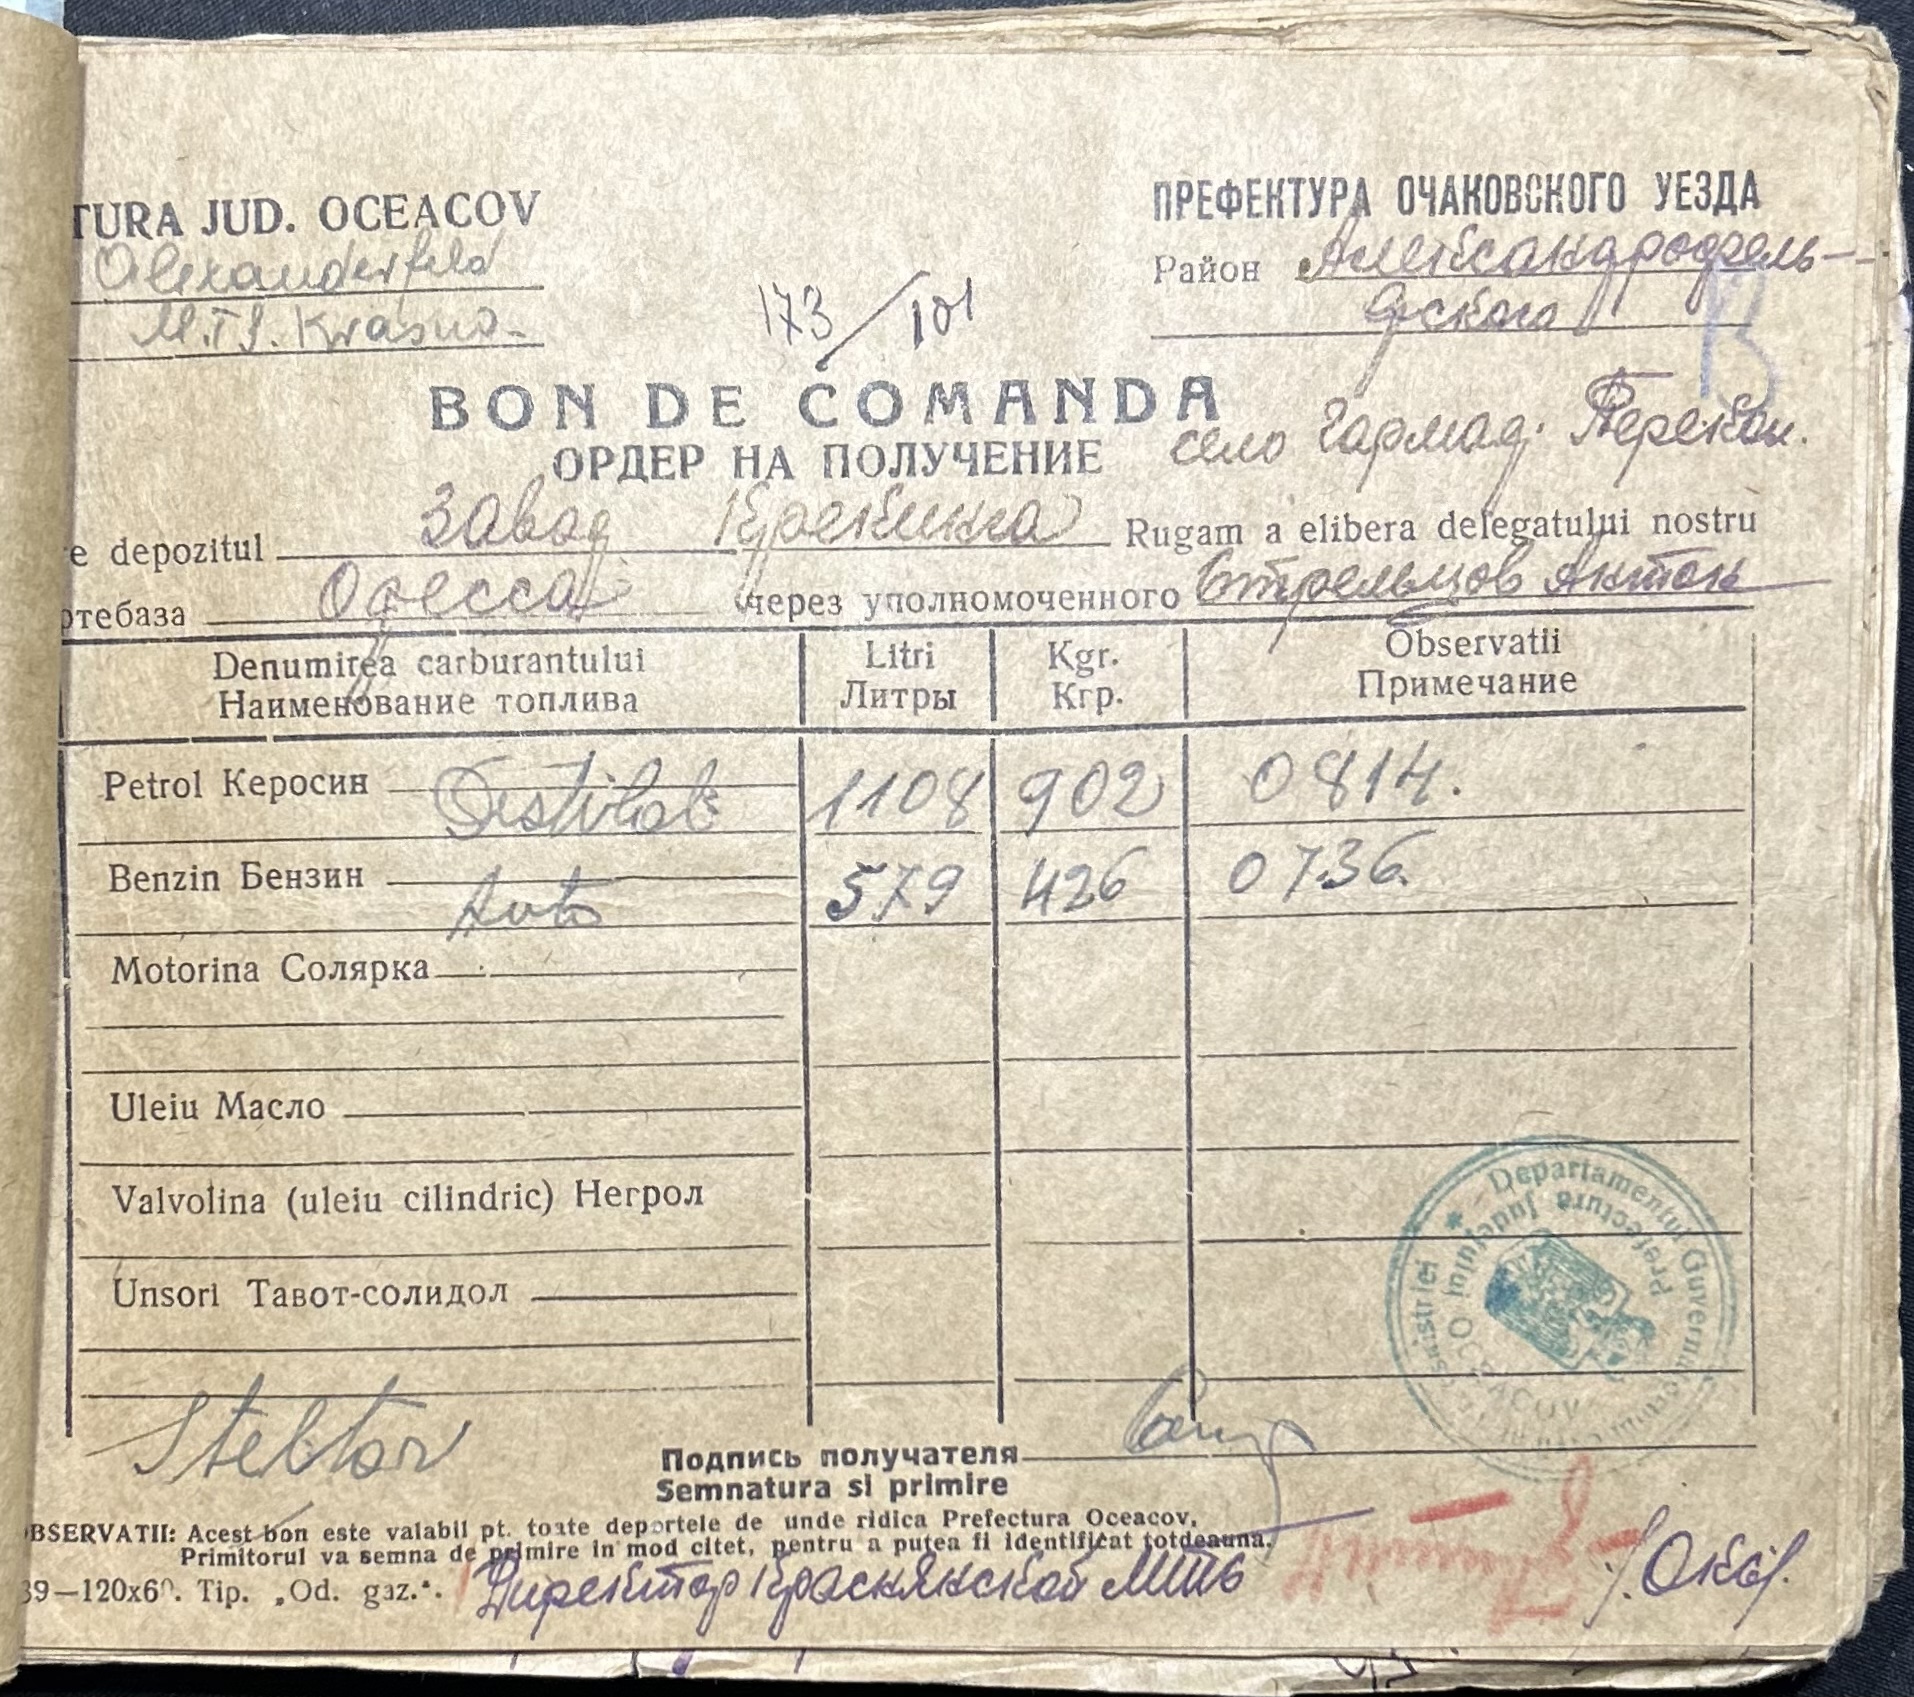 TURA JUD. OCEACOV
ПРЕФЕКТУРА ОЧАКОВСКОГО УЕЗДА
Alexanderfeld
Район Александрофель-
дского
M.T.S. Krasno-
173/101
BON DE COMANDA
ОРДЕР НА ПОЛУЧЕНИЕ
село Гармад.
e depozitul Завод Rugam a elibera delegatului nostru
ртебаза Одесса через уполномоченного Стрельцов Антон
Denumirea carburantului Litri Kgr. Observatii
Наименование топлива Литры Кгр. Примечание
Petrol Керосин Destilat 1108 902 0814.
Benzin Бензин Auto 579 426 0736.
Motorina Солярка
Uleiu Масло
Valvolina (uleiu cilindric) Негрол
Unsori Тавот-солидол
Departamentul Guvernământului
Prefectura Judeţului OCEACOV
Подпись получателя
Semnatura si primire
BSERVATII: Acest bon este valabil pt. toate deportele de unde ridica Prefectura Oceacov.
Primitorul va semna de primire in mod citet, pentru a putea fi identificat totdeauna.
39—120x60. Tip. „Od. gaz.“.
Директор Краснянской МТС